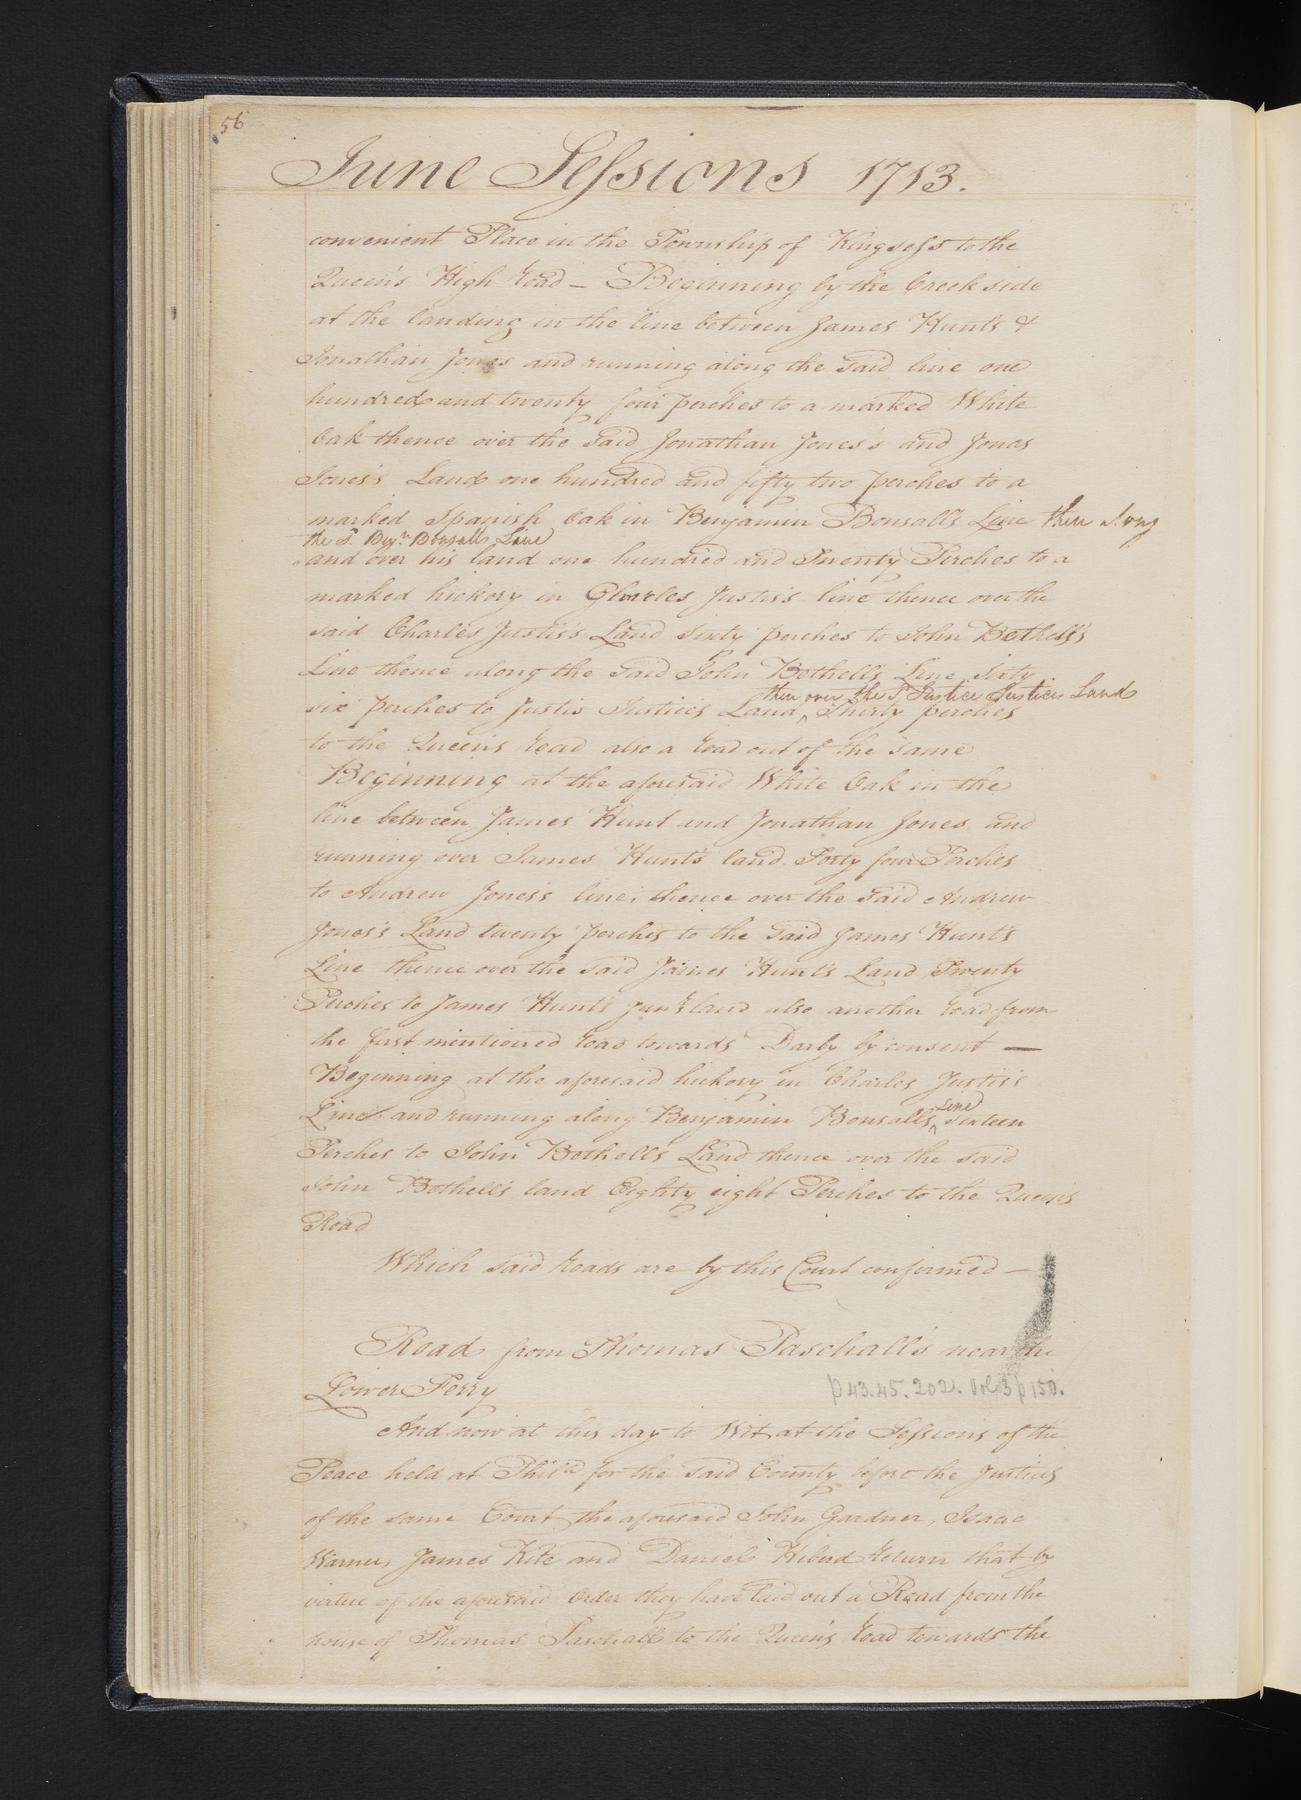 56
June Sessions 1713.
convenient Place in the Township of Kingsess to the
Queen's High Road — Beginning by the Creek side
at the landing in the line between James Hunts &
Jonathan Jones and running along the said line one
hundred and twenty four perches to a marked White
Oak thence over the said Jonathan Jones's and Jonas
Jones's Land one hundred and fifty two perches to a
marked Spanish Oak in Benjamin Bonsalls Line then along
the sd. Benjn. Bonsalls Line
and over his land one hundred and Twenty Perches to a
marked hickory in Charles Justis's line thence over the
said Charles Justis's Land sixty perches to John Bethell's
Line thence along the said John Bothell's Line Sixty
then over the sd. Justice Justice Land
six perches to Justis Justice's Land ^ Thirty perches
to the Queen's Road also a Road out of the same
Beginning at the aforesaid White Oak in the
line between James Hunt and Jonathan Jones and
running over James Hunt's land Forty four Perches
to Andrew Jones's line; thence over the said Andrew
Jones's Land twenty perches to the said James Hunt's
Line thence over the said James Hunt's Land Twenty
Perches to James Hunt's Junr land also another Road from
the first mentioned Road towards Darby by consent —
Beginning at the aforesaid hickory in Charles Justis's
Line
Line and running along Benjamin Bonsalls ^ sixteen
Perches to John Bothell's Land thence over the said
John Bothell's land Eighty eight Perches to the Queen's
Road
Which said Roads are by this Court confirmed —
Road from Thomas Paschall's near the
Lower Ferry
p 43. 45. 202. Vol 3 p 150.
And now at this day to Wit at the Sessions of the
Peace held at Philia for the said County before the Justices
of the same Court, the aforesaid John Gardner, Isaac
Warner, James Kite and Daniel Hiberd Return that by
virtue of the aforesaid Order they have laid out a Road from the
house of Thomas Paschall to the Queen's Road towards the